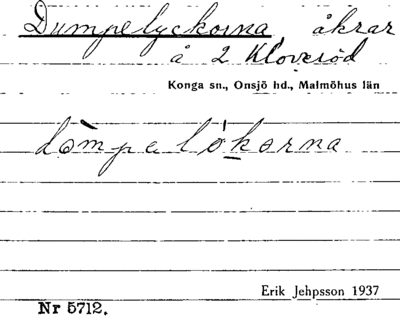 Dumpelyckorna, åkrar
å 2 Kloveröd
Konga sn., Onsjö hd., Malmöhus län
dòmpelókorna
Erik Jehpsson 1937
Nr 5712.